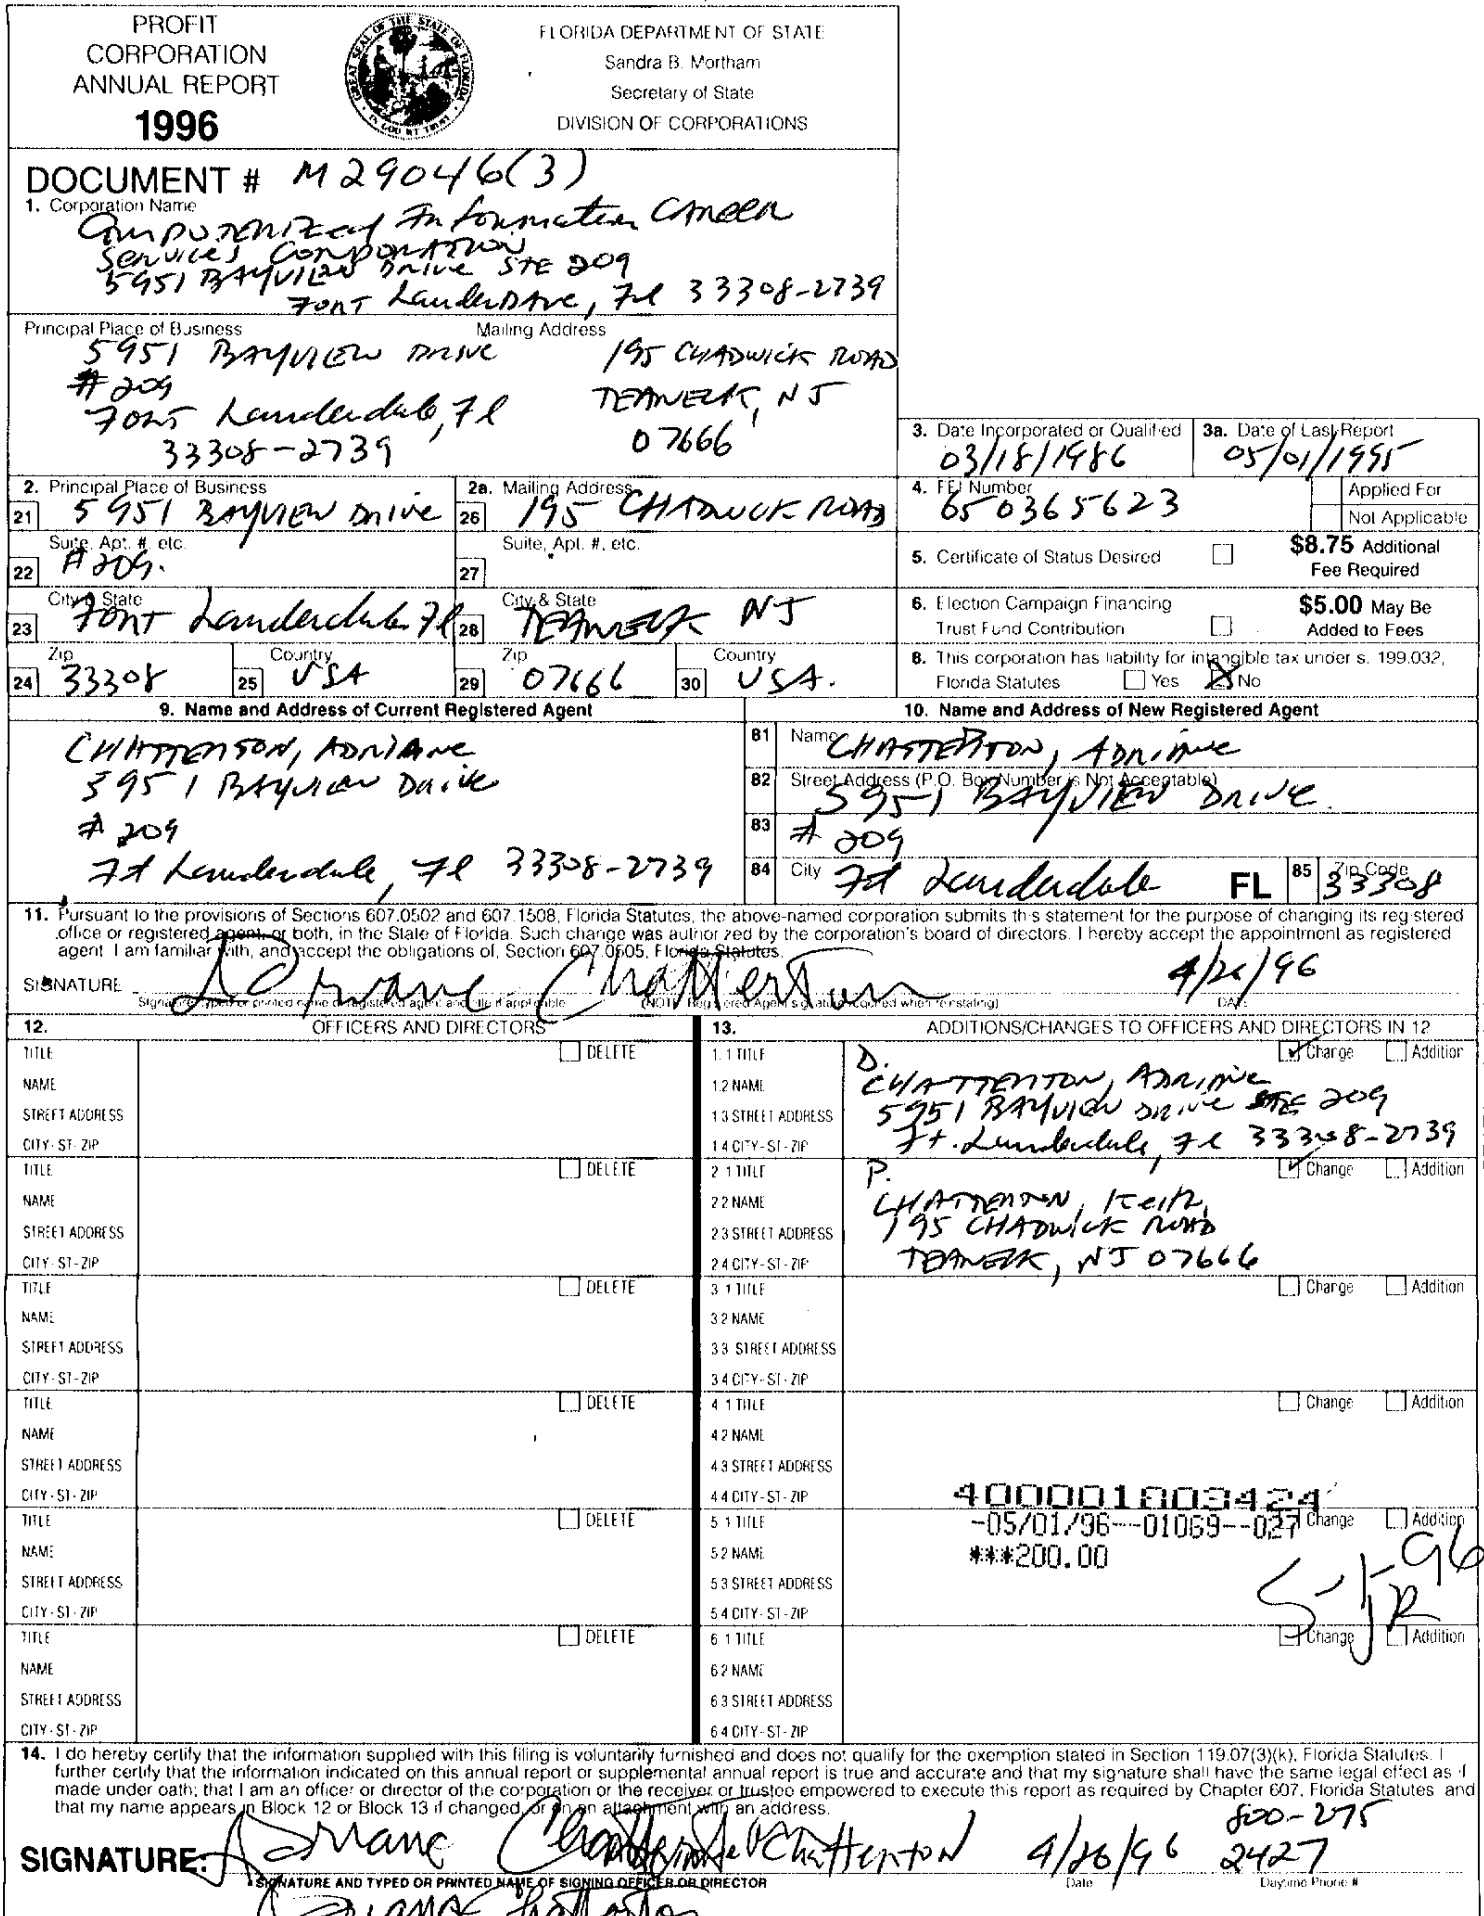 PROFIT
CORPORATION
ANNUAL REPORT
1996
GREAT SEAL OF THE STATE OF FLORIDA
IN GOD WE TRUST
FLORIDA DEPARTMENT OF STATE
Sandra B. Mortham
Secretary of State
DIVISION OF CORPORATIONS
DOCUMENT # M29046(3)
1. Corporation Name
Computerized Information Career
Services Corporation
5951 BAYVIEW Drive STE 209
FORT Lauderdale, Fl 33308-2739
Principal Place of Business Mailing Address
5951 BAYVIEW DRIVE 195 CHADWICK ROAD
#209 TEANECK, NJ
FORT Lauderdale, Fl 07666
33308-2739
3. Date Incorporated or Qualified 03/18/1986
3a. Date of Last Report 05/01/1995
2. Principal Place of Business
21 5951 BAYVIEW Drive
2a. Mailing Address
26 195 CHADWICK ROAD
4. FEI Number 650365623
Applied For
Not Applicable
Suite, Apt. #, etc.
22 #209.
Suite, Apt. #, etc.
27
5. Certificate of Status Desired
$8.75 Additional
Fee Required
City & State
23 FORT Lauderdale Fl
City & State
28 TEANECK NJ
6. Election Campaign Financing
Trust Fund Contribution
$5.00 May Be
Added to Fees
Zip
24 33308
Country
25 USA
Zip
29 07666
Country
30 USA.
8. This corporation has liability for intangible tax under s. 199.032,
Florida Statutes Yes X No
9. Name and Address of Current Registered Agent
CHATTERTON, ADRIANE
5951 BAYVIEW Drive
#209
Ft Lauderdale, Fl 33308-2739
10. Name and Address of New Registered Agent
81 Name CHATTERTON, ADRIANE
82 Street Address (P.O. Box Number is Not Acceptable)
5951 BAYVIEW DRIVE.
83 #209
84 City Ft Lauderdale FL 85 Zip Code 33308
11. Pursuant to the provisions of Sections 607.0502 and 607.1508, Florida Statutes, the above-named corporation submits this statement for the purpose of changing its registered
office or registered agent, or both, in the State of Florida. Such change was authorized by the corporation's board of directors. I hereby accept the appointment as registered
agent. I am familiar with, and accept the obligations of, Section 607.0505, Florida Statutes.
SIGNATURE Adriane Chatterton 4/26/96
Signature, typed or printed name of registered agent and title if applicable (NOTE: Registered Agent signature required when reinstating) DATE
12. OFFICERS AND DIRECTORS
13. ADDITIONS/CHANGES TO OFFICERS AND DIRECTORS IN 12
TITLE DELETE 1.1 TITLE D. Change Addition
NAME 1.2 NAME CHATTERTON, ADRIANE
STREET ADDRESS 1.3 STREET ADDRESS 5951 BAYVIEW DRIVE STE 209
CITY-ST-ZIP 1.4 CITY-ST-ZIP Ft. Lauderdale, Fl 33308-2739
TITLE DELETE 2.1 TITLE P. Change Addition
NAME 2.2 NAME CHATTERTON, Keith,
STREET ADDRESS 2.3 STREET ADDRESS 195 CHADWICK ROAD
CITY-ST-ZIP 2.4 CITY-ST-ZIP TEANECK, NJ 07666
TITLE DELETE 3.1 TITLE Change Addition
NAME 3.2 NAME
STREET ADDRESS 3.3 STREET ADDRESS
CITY-ST-ZIP 3.4 CITY-ST-ZIP
TITLE DELETE 4.1 TITLE Change Addition
NAME 4.2 NAME
STREET ADDRESS 4.3 STREET ADDRESS
CITY-ST-ZIP 4.4 CITY-ST-ZIP 400001803424
TITLE DELETE 5.1 TITLE -05/01/96--01069--027 Change Addition
NAME 5.2 NAME ***200.00
STREET ADDRESS 5.3 STREET ADDRESS 5-1-96
CITY-ST-ZIP 5.4 CITY-ST-ZIP JR
TITLE DELETE 6.1 TITLE Change Addition
NAME 6.2 NAME
STREET ADDRESS 6.3 STREET ADDRESS
CITY-ST-ZIP 6.4 CITY-ST-ZIP
14. I do hereby certify that the information supplied with this filing is voluntarily furnished and does not qualify for the exemption stated in Section 119.07(3)(k), Florida Statutes. I
further certify that the information indicated on this annual report or supplemental annual report is true and accurate and that my signature shall have the same legal effect as if
made under oath; that I am an officer or director of the corporation or the receiver or trustee empowered to execute this report as required by Chapter 607, Florida Statutes and
that my name appears in Block 12 or Block 13 if changed, or on an attachment with an address.
SIGNATURE: Adriane Chatterton Chatterton 4/26/96 800-275
2427
SIGNATURE AND TYPED OR PRINTED NAME OF SIGNING OFFICER OR DIRECTOR Date Daytime Phone #
Adriane Chatterton